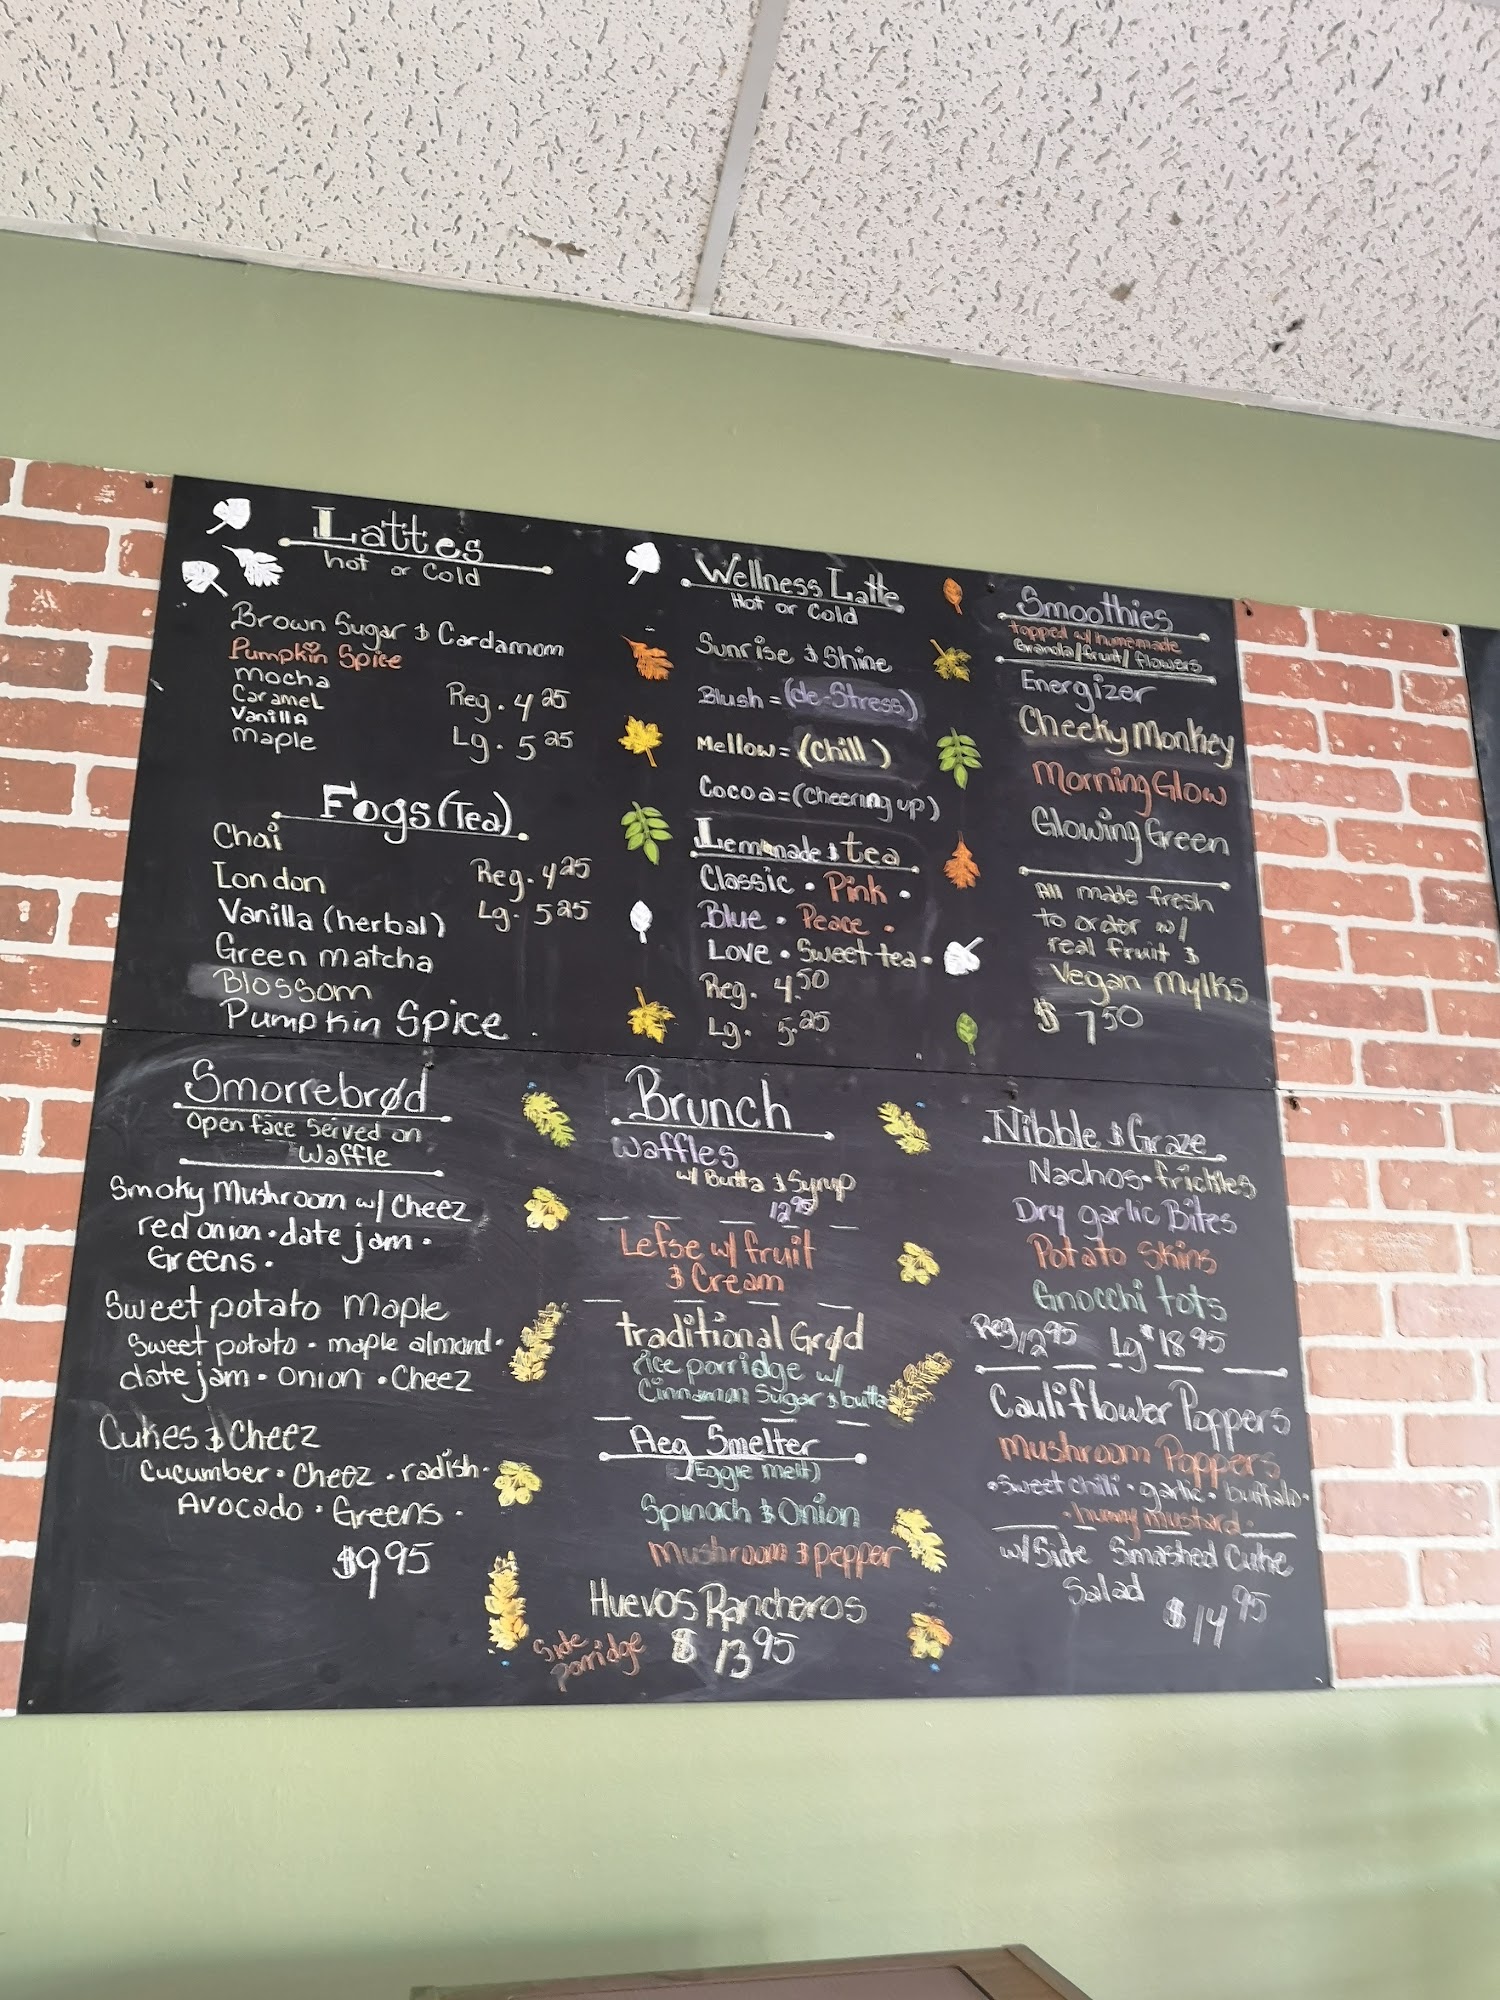 Lattes
hot or Cold
Brown Sugar & Cardamom
Pumpkin Spice
mocha
Caramel
Vanilla
maple
Reg. 4.25
Lg. 5.25
Fogs (Tea)
Chai
London
Vanilla (herbal)
Green matcha
Blossom
Pumpkin Spice
Reg. 4.25
Lg. 5.25
Wellness Latte
Hot or Cold
Sunrise & Shine
Blush = (de-Stress)
Mellow = (Chill)
Cocoa = (Cheering up)
Lemonade & tea
Classic • Pink •
Blue • Peace •
Love • Sweet tea •
Reg. 4.50
Lg. 5.25
Smoothies
topped w/ humemade
Granola/fruit/flowers
Energizer
Cheeky Monkey
Morning Glow
Glowing Green
All made fresh
to order w/
real fruit &
Vegan Mylks
$7.50
Smorrebrød
Open face Served on
Waffle
Smoky Mushroom w/ Cheez
red onion • date jam •
Greens •
Sweet potato Maple
Sweet potato • maple almond •
date jam • onion • Cheez
Cukes & Cheez
Cucumber • Cheez • radish •
Avocado • Greens •
$9.95
Brunch
Waffles
w/ Butta & Syrup
12.95
Lefse w/ fruit
& Cream
traditional Grød
rice porridge w/
Cinnamon Sugar & butta
Aeg Smelter
(Eggie melt)
Spinach & Onion
Mushroom & pepper
Huevos Rancheros
Side
porridge
$13.95
Nibble & Graze
Nachos • frickles
Dry garlic Bites
Potato Skins
Gnocchi tots
Reg 12.95 Lg $18.95
Cauliflower Poppers
Mushroom Poppers
• Sweet chili • garlic • buffalo •
• hunny mustard •
w/ Side Smashed Cuke
Salad
$14.95